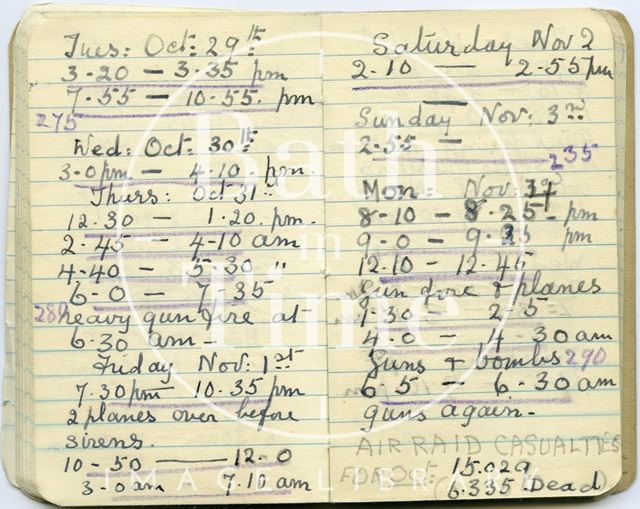 Tues: Oct: 29th
3-20 — 3.35 pm
7.55 — 10.55. pm
275
Wed: Oct: 30th
3-0 pm — 4.10. pm.
Thurs: Oct 31st
12.30 — 1.20. pm.
2.45 — 4-10 am
4-40 — 5.30 "
6-0 — 7.35
280
heavy gun fire at
6.30 am —
Friday Nov: 1st
7.30pm — 10.35 pm
2 planes over before
sirens.
10-50 — 12.0
3-0 am 7.10 am
Saturday Nov 2
2.10 — 2.55 pm
Sunday Nov: 3rd
2.55 —
235
Mon: Nov: 4
8-10 — 8.25 pm
9-0 — 9.35 pm
12.10 — 12.45
Gun fire & planes
1-30 — 2-5
4-0 — 4.30 am
Guns & bombs 290
6-5 — 6.30 am
guns again—
AIR RAID CASUALTIES
FOR Oct: 15.029
(6.335 Dead)
Bath in Time
IMAGE LIBRARY